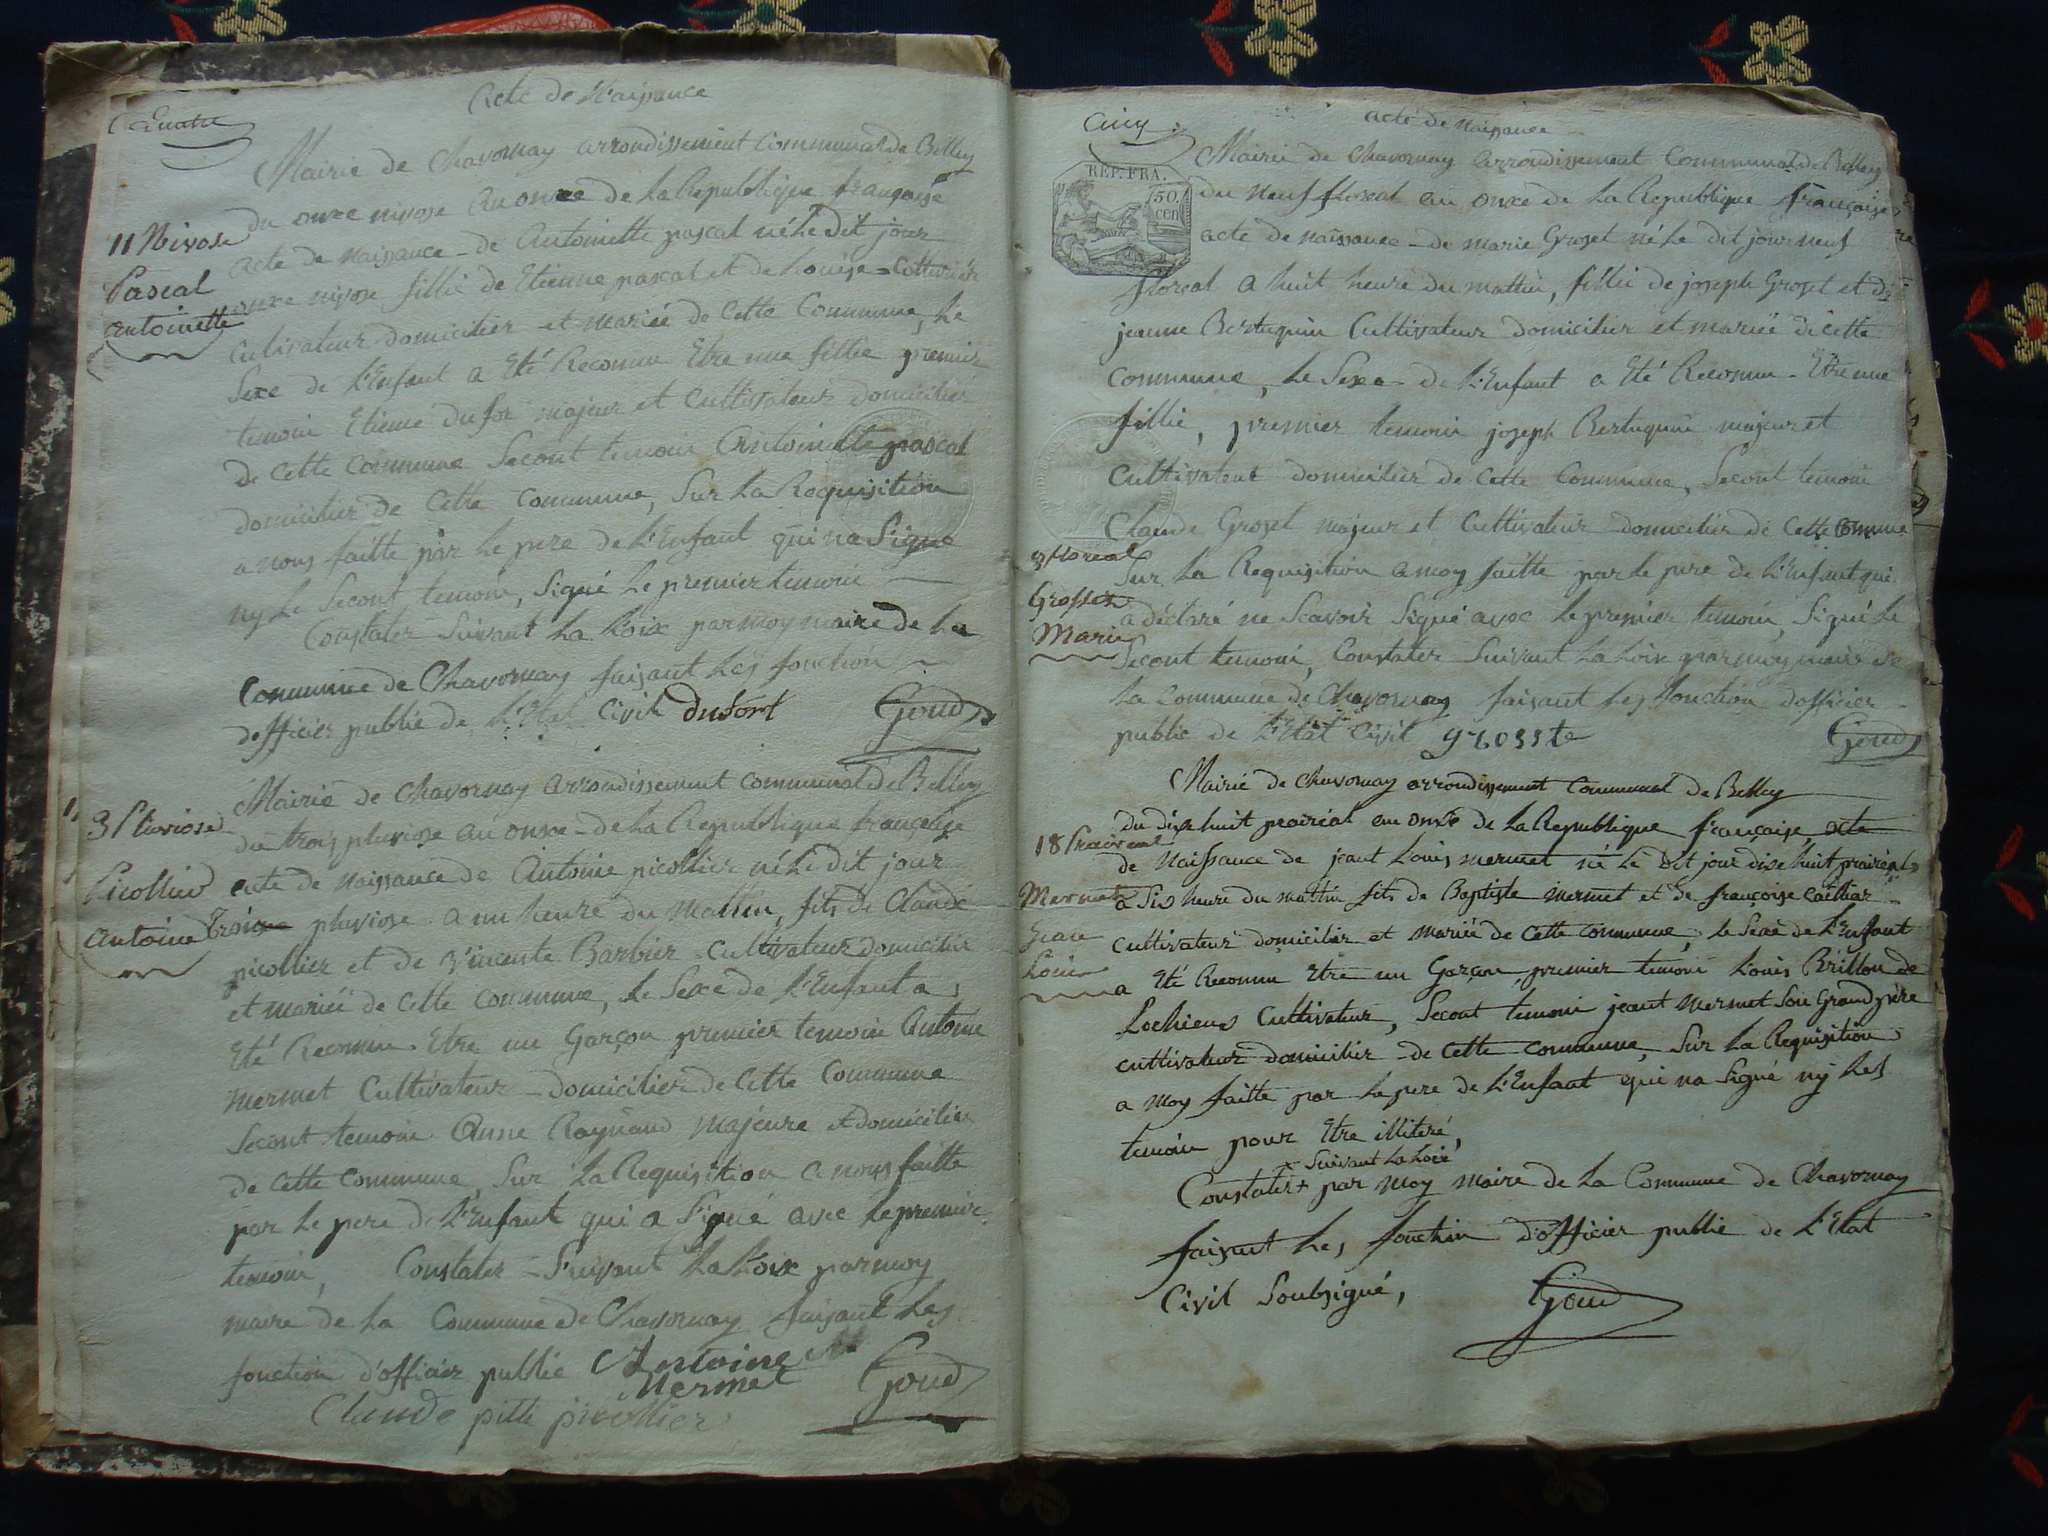 Quatre
Acte de Naissance
Mairie de Chavornay arrondissement Communal de Belley
du onze nivose an onze de la Republique française
acte de naissance de Antoinette pascal né le dit jour
onze nivose fillie de Etienne pascal et de Louise
Cultivateur domicilier et mariée de Cette Commune, le
Sexe de L'Enfant a Eté Reconnu Etre une fillie premier
temoin Etienne dufor majeur et Cultivateur domicilier
de Cette Commune Secont temoin Antoinette pascal
domicilier de Cette Commune, Sur La Requisition
a nous faitte par Le pere de L'Enfant qui na Signé
ny Le Secont temoin, Signé Le premier temoin
Constater Suivant La Loix par moy maire de La
Commune de Chavornay faisant Les fonction
dofficier public de L'Etat Civil dufort Goud
11 Nivose
Pascal
antoinette
Mairie de Chavornay arrondissement Communal de Belley
du trois pluviose an onze de La Republique française
acte de naissance de Antoine picollier né Le dit jour
Troize pluviose a un heure du Mattin, fils de Claude
picollier et de Vincente Barbier Cultivateur domicilier
et mariée de Cette Commune, Le Sexe de L'Enfant a
Eté Reconnu Etre un Garçon premier temoin Antoine
Mermet Cultivateur domicilier de Cette Commune
Secont temoin Anne Raynaud majeure et domicilier
de Cette Commune, Sur La Requisition a nous faitte
par Le pere de L'Enfant qui a Signé avec Le premier
temoin, Constater Suivant La Loix par moy
maire de La Commune de Chavornay faisant Les
fonction d'officier public Antoine
Mermet Goud
Claude picollier
3 Pluviose
Picollier
antoine
Cinq
acte de Naissance
REP. FRA.
50.
cen
Mairie de Chavornay arrondissement Communal de Belley
du neuf floreal an onze de La Republique française
acte de naissance de marie Groset né Le dit jour neuf
floreal a huit heure du mattin, fillie de joseph Groset et de
jeanne Bertuquin Cultivateur domicilier et mariée de Cette
Commune, Le Sexe de L'Enfant a Eté Reconnu Etre une
fillie, premier temoin joseph Bertuquin majeur et
Cultivateur domicilier de Cette Commune, Secont temoin
Claude Groset majeur et Cultivateur domicilier de Cette Commune
Sur La Requisition a moy faitte par Le pere de L'Enfant qui
a déclaré ne Scavoir Signé avec Le premier temoin, Signé Le
Secont temoin, Constater Suivant La Loix par moy maire de
La Commune de Chavornay faisant Les fonction dofficier
public de L'Etat Civil grosste Goud
9 floreal
Grosset
Marie
Mairie de Chavornay arrondissement Communal de Belley
du dixe huit prairial an onze de La Republique française acte
de Naissance de jeant Louis mermet né Le dit jour dixe huit prairial
a Six heure du mattin fils de Baptiste mermet et de françoise Caillier
Cultivateur domicilier et mariée de Cette Commune, Le Sexe de L'Enfant
a Eté Reconnu Etre un Garçon premier temoin Louis Brillon de
Lochieus Cultivateur, Secont temoin jeant mermet Son Grand père
cultivateur domicilier de Cette Commune, Sur La Requisition
a moy faitte par Le pere de L'Enfant qui na Signé ny Les
temoin pour Etre illiteré,
Suivant La Loix
Constater + par moy maire de La Commune de Chavornay
faisant Les fonction d'officier public de L'Etat
Civil Soubsigné, Goud
18 Prairial
Mermet
Jean
Louis